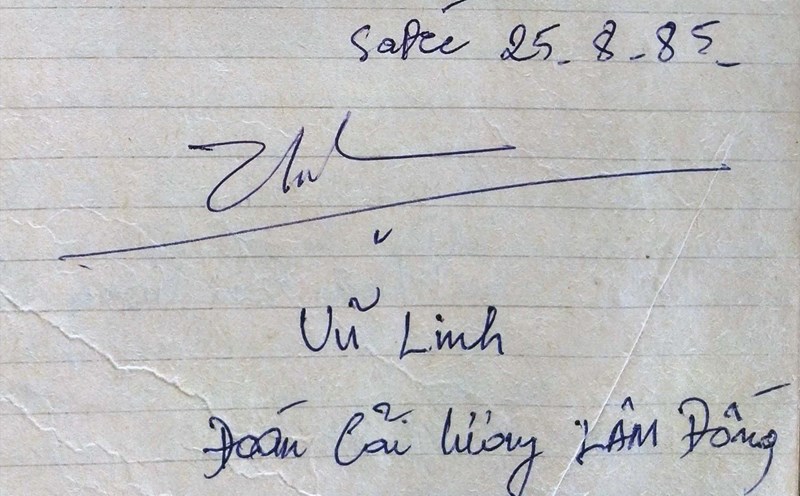 Sađéc 25-8-85-
Vũ Linh
Đoàn Cải lương LÂM Đồng